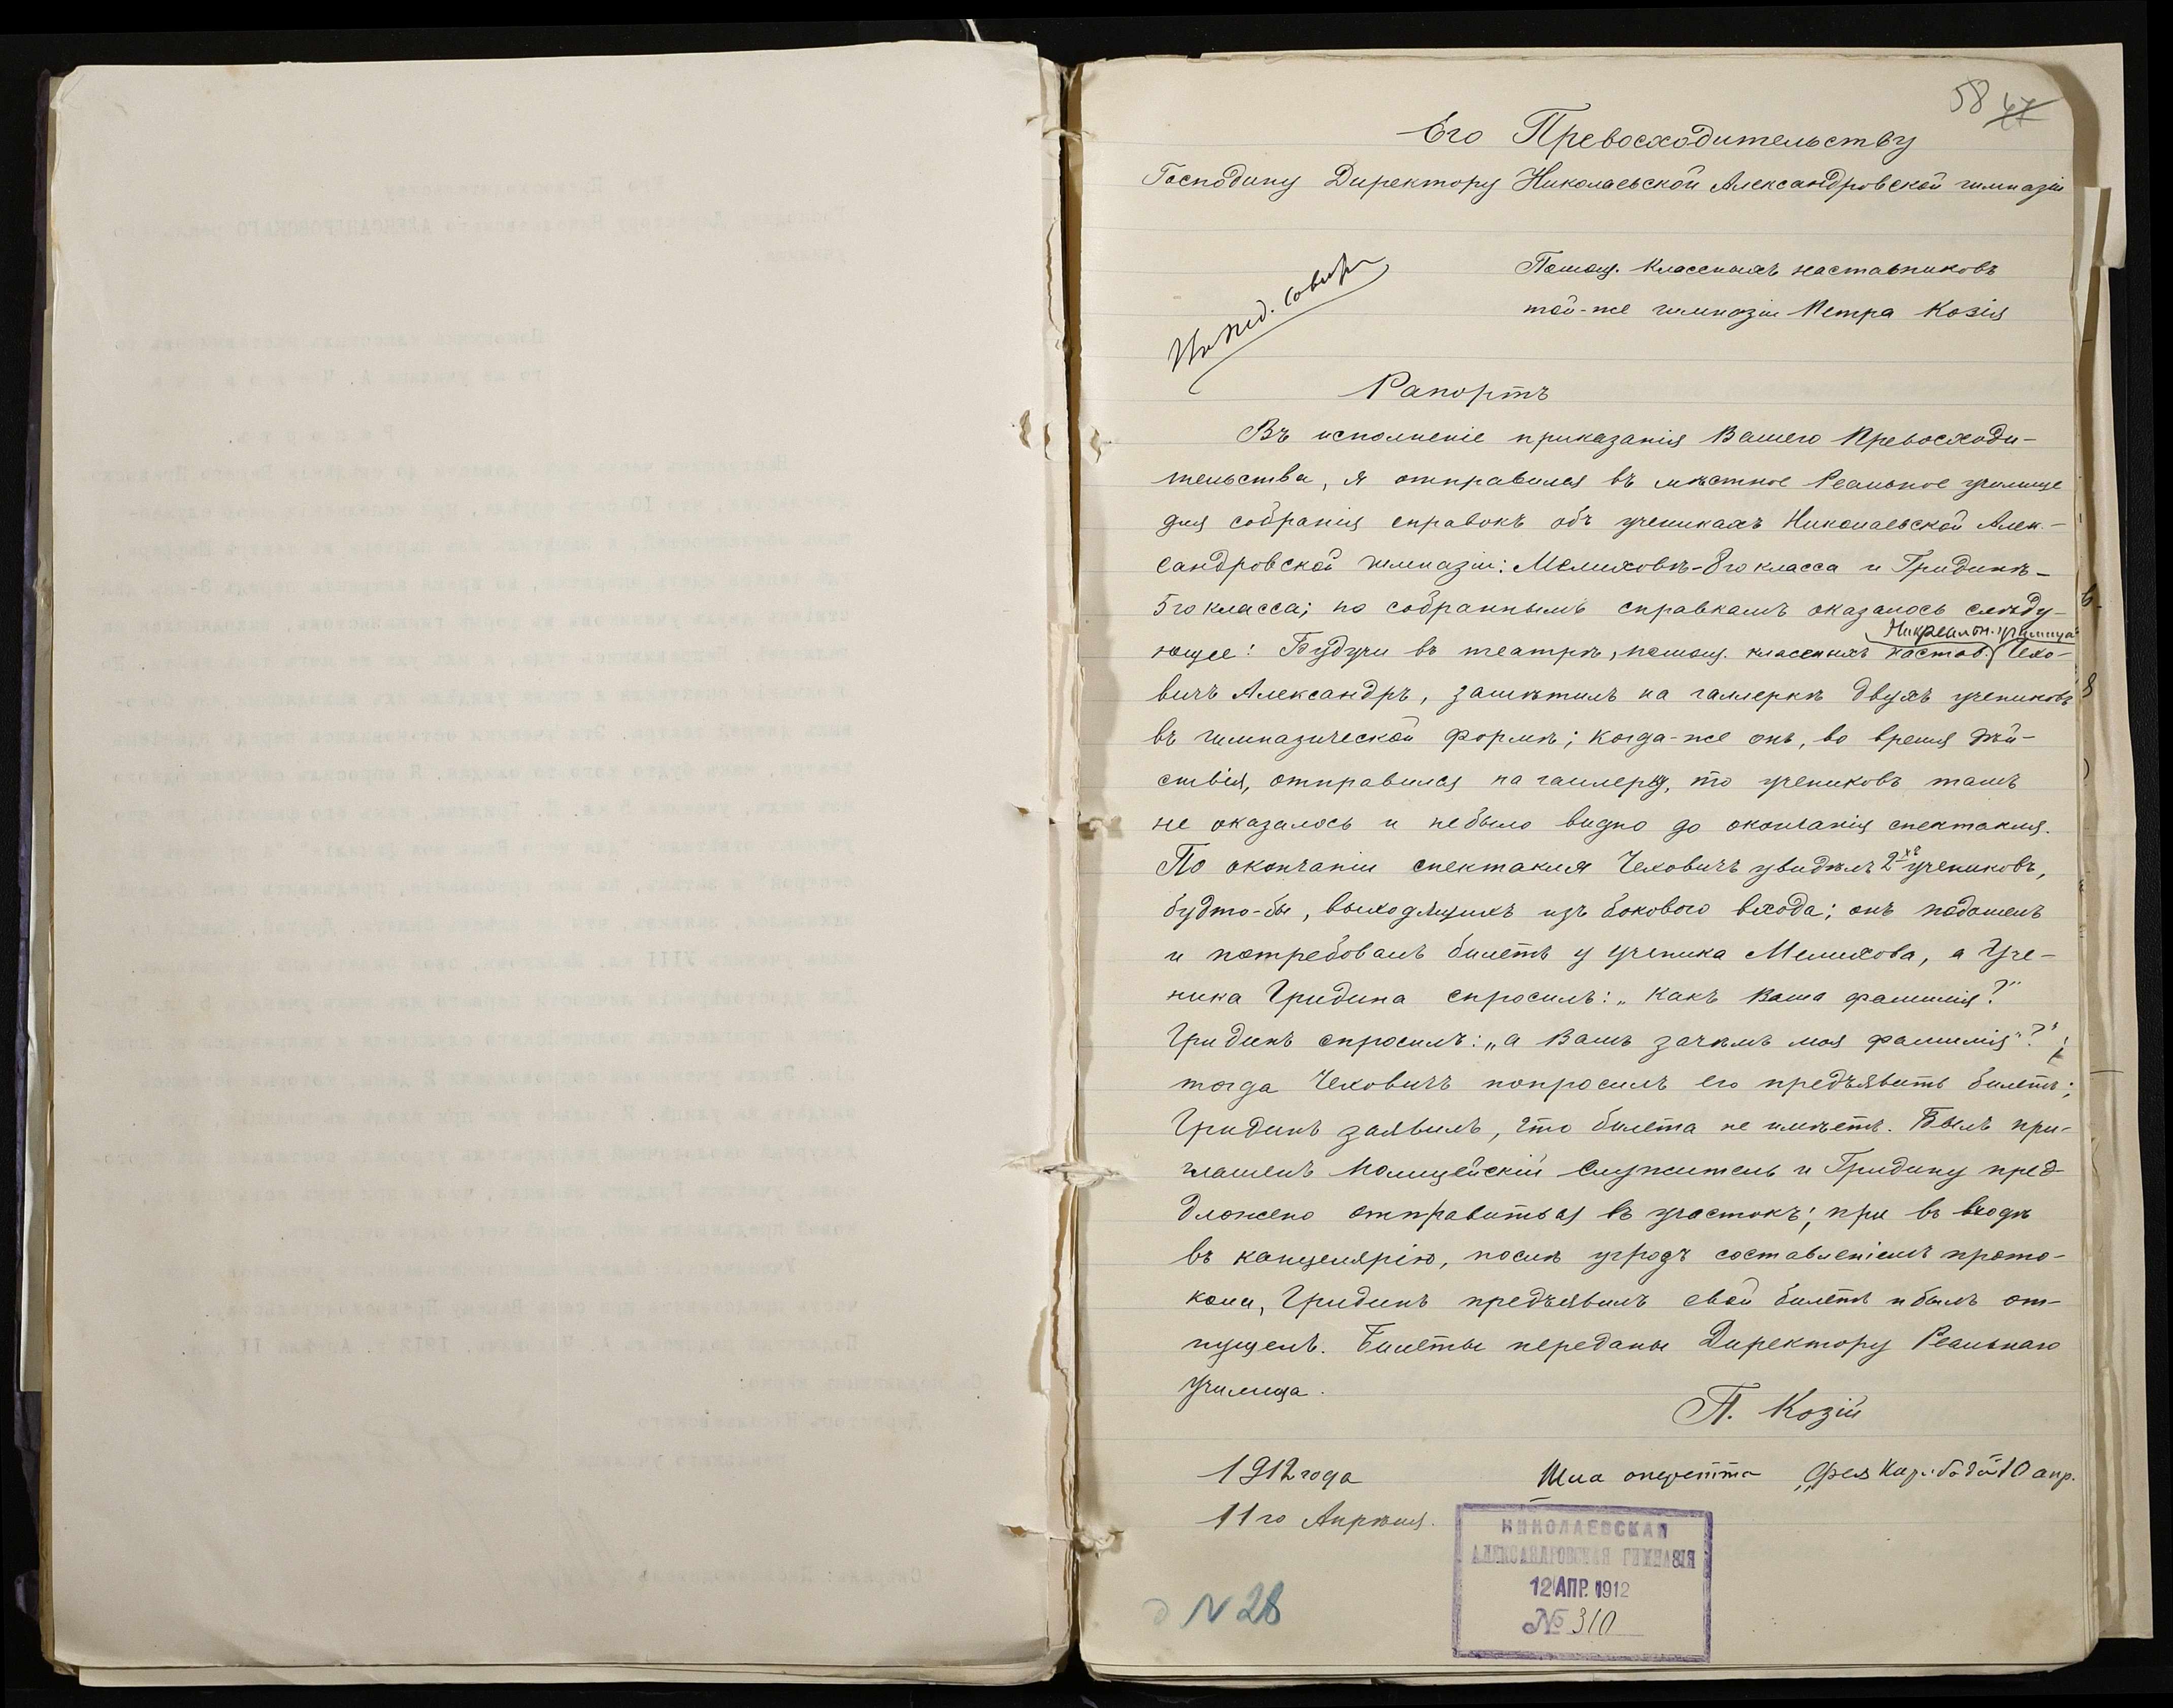 58 47
Его Превосходительству
Господину Директору Николаевской Александровской гимназіи
Помощ. классныхъ наставниковъ
той-же гимназіи Петра Козія
Въ пед. совѣтъ
Рапортъ
Въ исполненіе приказанія Вашего Превосходи-
тельства, я отправился въ мѣстное Реальное училище
для собранія справокъ объ ученикахъ Николаевской Алек-
сандровской гимназіи: Мелиховѣ-8го класса и Гридинѣ-
5го класса; по собраннымъ справкамъ оказалось слѣду-
Ник. реальн. училища
ющее: Будучи въ театрѣ, помощ. классныхъ настав. Чехо-
вичъ Александръ, замѣтилъ на галлеркѣ двухъ учениковъ
въ гимназической формѣ; когда-же онъ, во время дѣй-
ствія, отправился на галлерку, то учениковъ тамъ
не оказалось и небыло видно до окончанія спектакля.
По окончаніи спектакля Чеховичъ увидѣлъ 2хъ учениковъ,
будто-бы, выходящихъ изъ бокового входа; онъ подошелъ
и потребовалъ билетъ у ученика Мелихова, а уче-
ника Гридина спросилъ: „Какъ Ваша фамилія?"
Гридинъ спросилъ: „а Вамъ зачѣмъ моя фамилія"?;
тогда Чеховичъ попросилъ его предъявить билетъ;
Гридинъ заявилъ, что билета не имѣетъ. Былъ при-
глашенъ полицейскій служитель и Гридину пред-
дложено отправиться въ участокъ; при въ входѣ
въ канцелярію, послѣ угрозъ составленіемъ прото-
кола, Гридинъ предъявилъ свой билетъ и былъ от-
пущенъ. Билеты переданы Директору Реальнаго
Училища.
П. Козій
1912 года
Шла оперетта „Фея 10 апр.
11го Апрѣля.
НИКОЛАЕВСКАЯ
АЛЕКСАНДРОВСКАЯ ГИМНАЗІЯ
12 АПР. 1912
№ 310
N 28